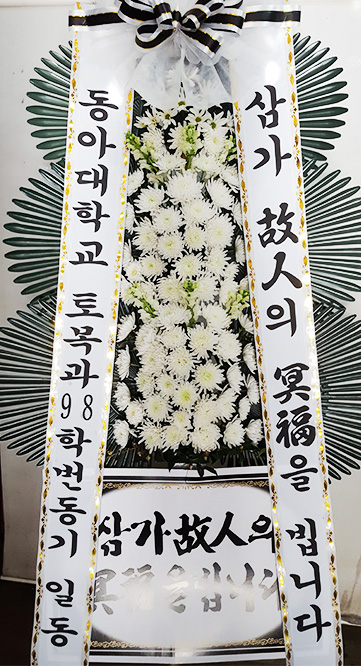 삼가 故人의 冥福을 빕니다
동아대학교 토목과 98 학번동기 일동
삼가故人의
冥福을빕니다